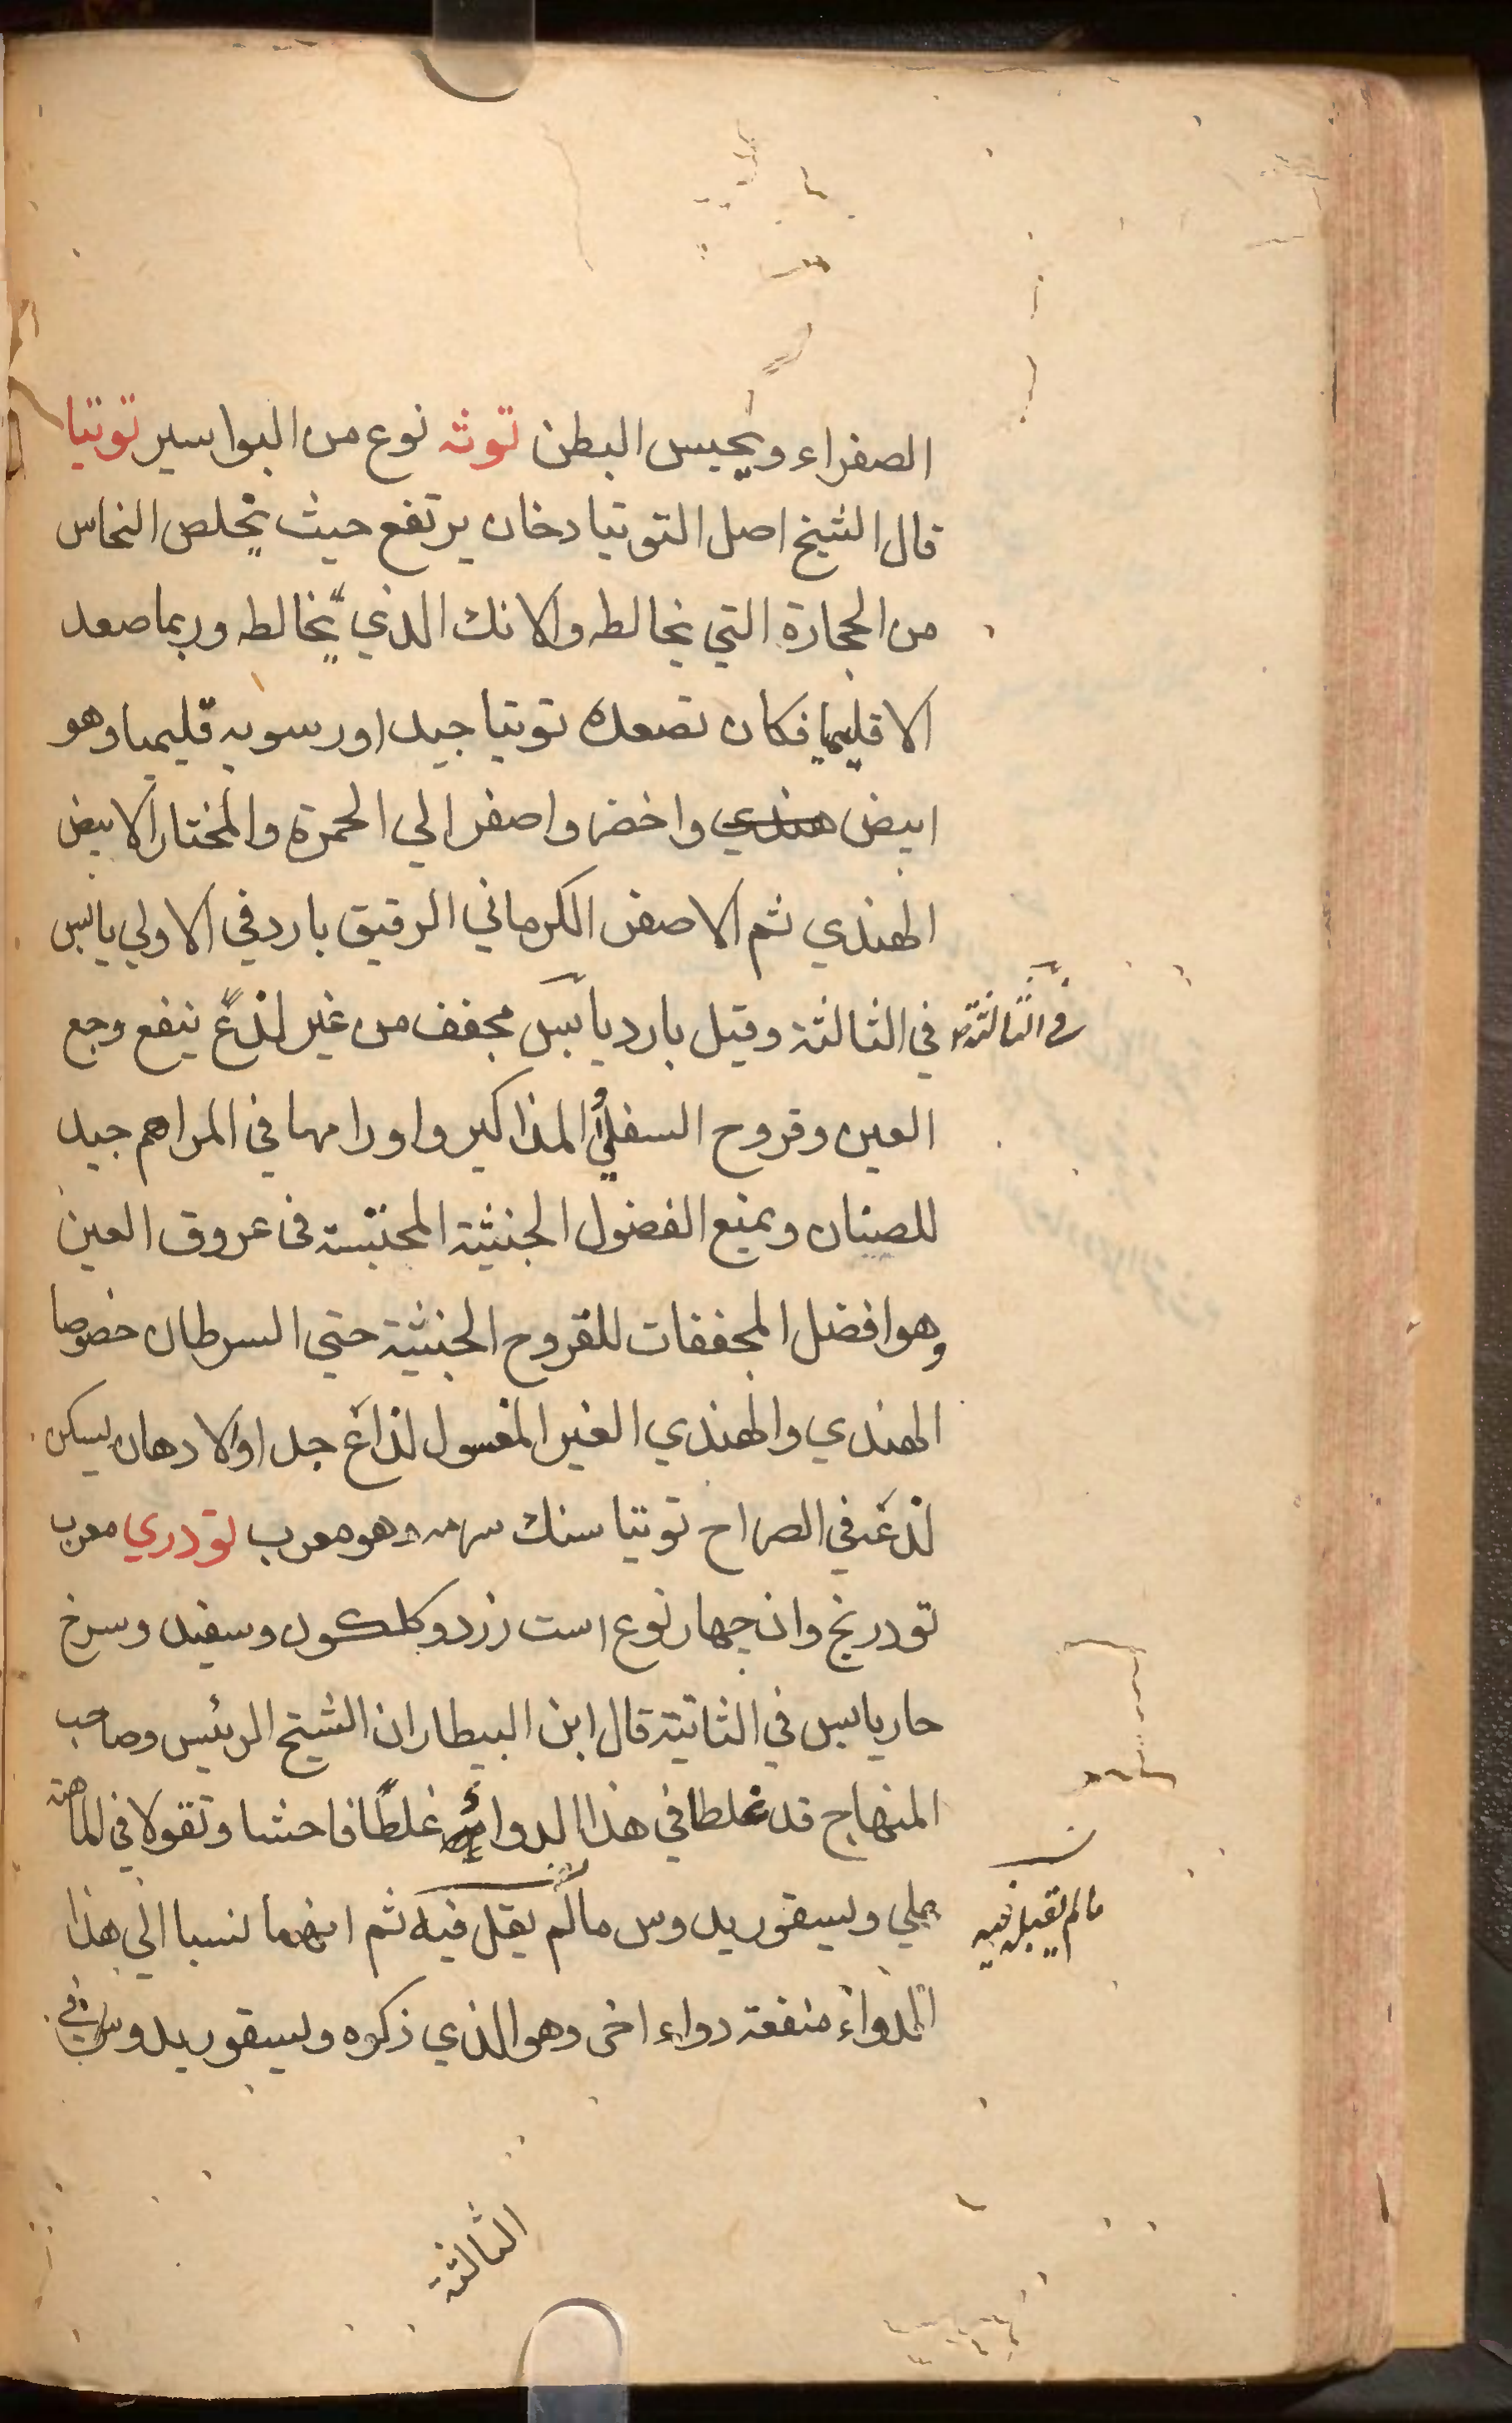 الصفراء ويحبس البطن توثه نوع من البواسير توتيا
قال الشيخ اصل التوتيا دخان يرتفع حيث يخلص النحاس
من الحجارة التي يخالطه والانك الذي يخالطه وربما صعد
الاقليميا فكان تصعده توتيا جيدا ورسوبه قليميا وهو
ابيض هندي واخضر واصفر الي الحمرة والمختار الابيض
الهندي ثم الاصفر الكرماني الرقيق بارد في الاولي يابس
في الثالثة وقيل بارد يابس مجفف من غير لذع ينفع وجع
في الثالثة
العين وقروح السفلي المذاكير واورامها في المراهم جيد
للصنان ويمنع الفضول الخبيثة المحتبسة في عروق العين
وهو افضل المجففات للقروح الخبيثة حتي السرطان خصوصا
الهندي والهندي الغير المغسول لذاع جدا والادهان يسكن
لذعه في الصراح توتيا سنك سرمه وهو معرب تودري معرب
تودرنج وان چهار نوع است زرد وكلكون وسفيد وسرخ
حار يابس في الثانية قال ابن البيطار ان الشيخ الرئيس وصاحب
المنهاج قد غلطا في هذا الدواء غلطا فاحشا وتقولا في الماهية
علي ديسقوريدوس مالم يقل فيه ثم انهما نسبا الي هذا
مالم يقبل فيه
الدواء منفعة دواء اخر وهو الذي ذكره ديسقوريدوس في
الثالثة